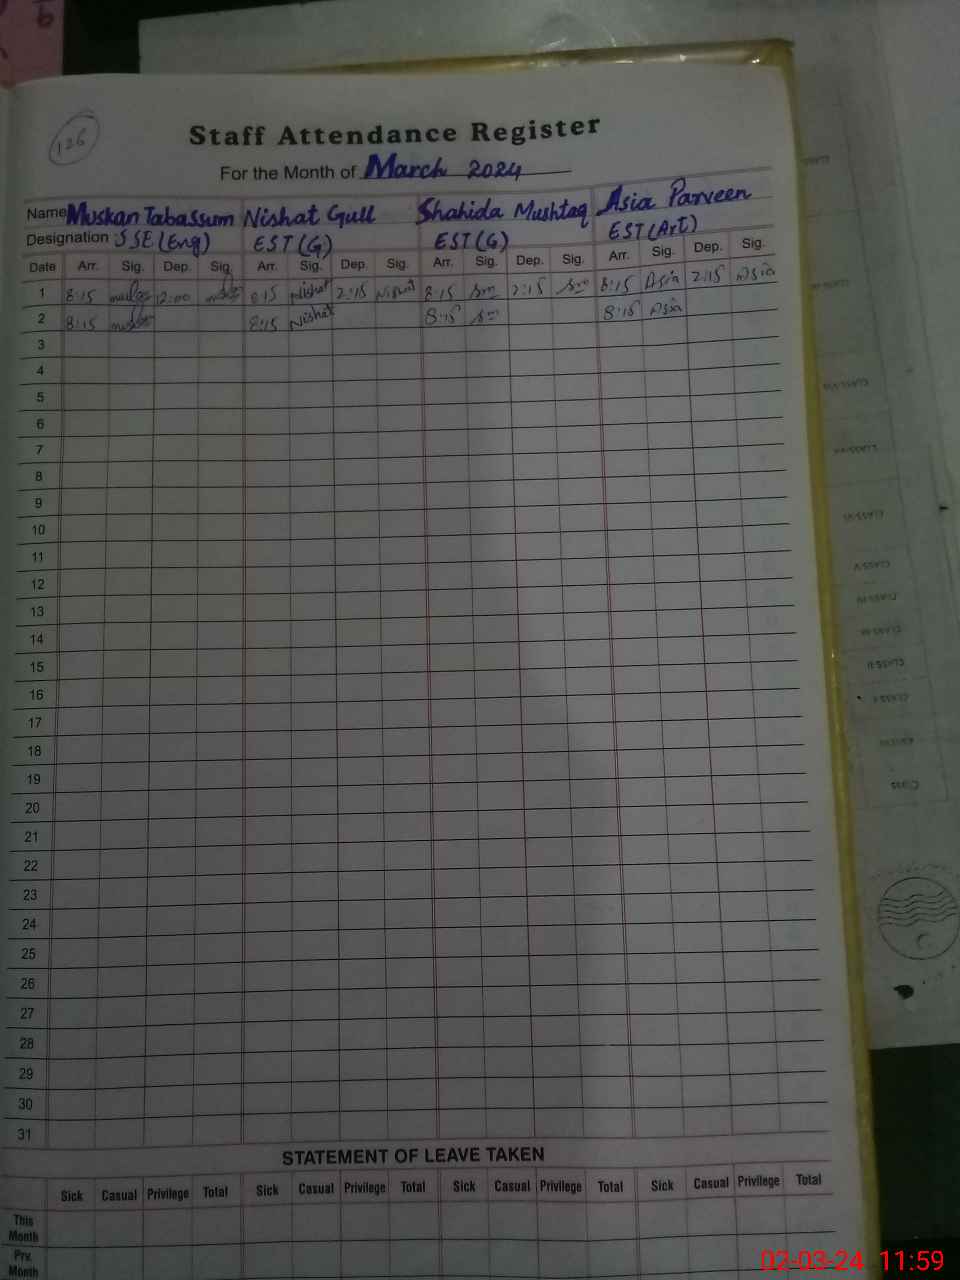 126
Staff Attendance Register
For the Month of March 2024
Name Muskan Tabassum Nishat Gull Shahida Mushtaq Asia Parveen
Designation SSE (Eng) EST (G) EST (G) EST (Art)
Date Arr. Sig. Dep. Sig. Arr. Sig. Dep. Sig. Arr. Sig. Dep. Sig. Arr. Sig. Dep. Sig.
1 8:15 12:00 8:15 Nishat 2:15 Nishat 8:15 2:15 8:15 Asia 2:15 Asia
2 8:15 8:15 Nishat 8:15 8:15 Asia
3
4
5
6
7
8
9
10
11
12
13
14
15
16
17
18
19
20
21
22
23
24
25
26
27
28
29
30
31
STATEMENT OF LEAVE TAKEN
Sick Casual Privilege Total Sick Casual Privilege Total Sick Casual Privilege Total Sick Casual Privilege Total
This
Month
Prv.
Month
02-03-24 11:59